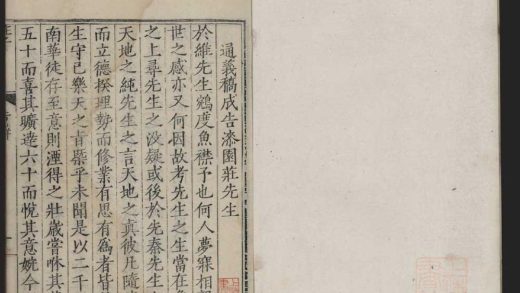 通義稿成告漆園莊先生
於維先生鵷度魚襟予也何人夢寐相
世之感亦又何因故考先生之生當在
之上尋先生之没疑或後於先秦先生
天地之純先生之言天地之真彼凡隨
而立德揆理勢而修業有思有為者皆
生守已樂天之昔乎未聞是以二千
南華徒存至意則湮得之壯歲嘗咻其
五十而喜其曠達六十而悅其意婉今